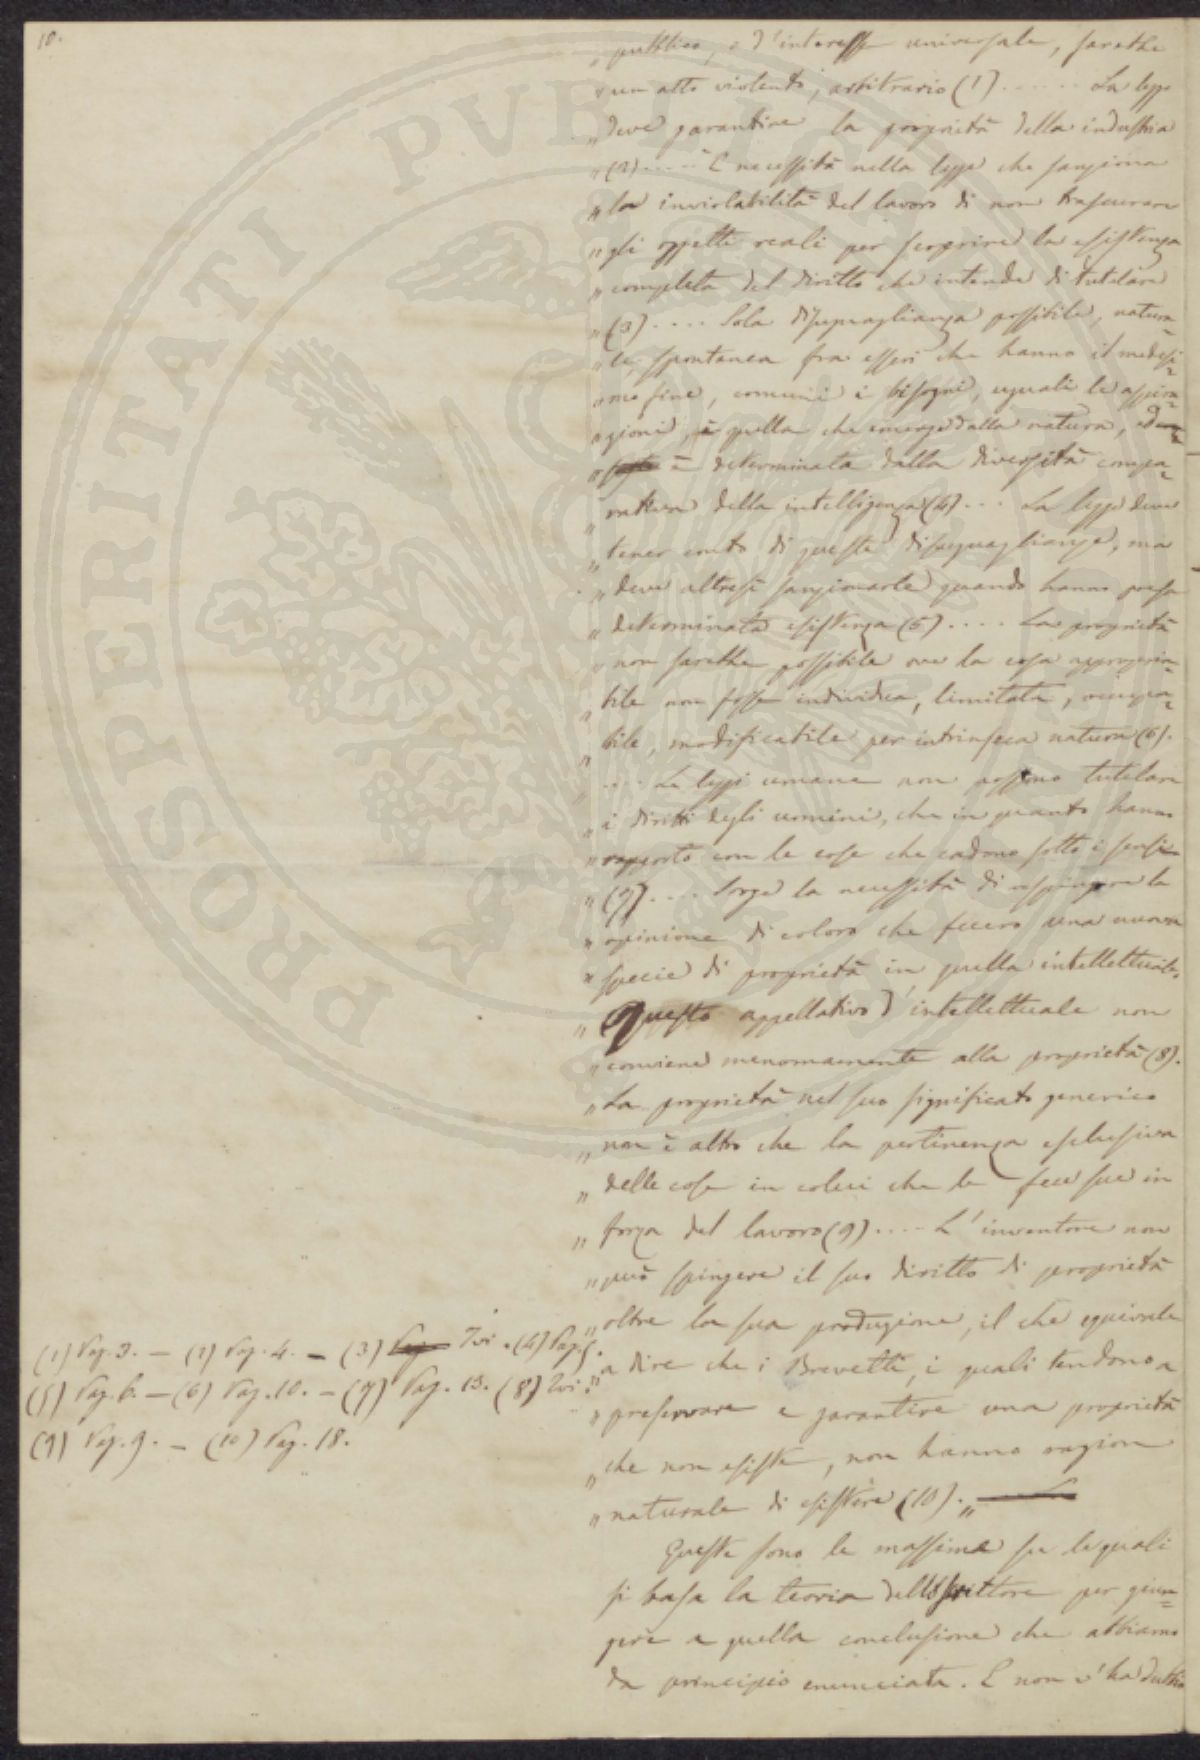 18.
„ pubblico, o d'interesse universale, sarebbe
„ un atto violento, arbitrario (1) ...... La legge
„ deve garantire la proprietà della industria
„ (2) ..... È necessità nella legge che sanziona
„ la inviolabilità del lavoro di non trascurare
„ gli oggetti reali per scoprire la esistenza
„ completa del diritto che intende di tutelare
„ (3) .... Sola disuguaglianza possibile, natura=
„ le, spontanea fra esseri che hanno il medesi=
„ mo fine, comuni i bisogni, uguali le aspira=
„ zioni, è quella che emerge dalla natura, ed
„ è determinata dalla diversità compa=
„ rativa della intelligenza (4) ... La legge deve
„ tener conto di queste disuguaglianze, ma
„ deve altresì sanzionarle quando hanno presa
„ determinata esistenza (5) .... La proprietà
„ non sarebbe possibile ove la cosa appropria=
„ bile non fosse individua, limitata, occupa=
„ bile, modificabile per intrinseca natura (6).
„ .... Le leggi umane non possono tutelare
„ i diritti degli uomini, che in quanto hanno
„ rapporto con le cose che cadono sotto i sensi
„ (7) .... Sorge la necessità di respingere la
„ opinione di coloro che fecero una nuova
„ specie di proprietà in quella intellettuale.
„ Questo appellativo d'intellettuale non
„ conviene menomamente alla proprietà (8).
„ La proprietà nel suo significato generico
„ non è altro che la pertinenza esclusiva
„ delle cose in colui che le fece sue in
„ forza del lavoro (9) .... L'inventore non
„ può spingere il suo diritto di proprietà
„ oltre la sua produzione, il che equivale
„ a dire che i Brevetti, i quali tendono a
„ preservare e garantire una proprietà
„ che non esiste, non hanno ragione
„ naturale di esistere (10). „
Queste sono le massime su le quali
si basa la teoria dello Scrittore per giun=
gere a quella conclusione che abbiamo
da principio enunciata. E non v'ha dubbio
(1) Pag. 3. — (2) Pag. 4. — (3) Pag. Ivi. (4) Pag. 5.
(5) Pag. 6. — (6) Pag. 10. — (7) Pag. 13. (8) Ivi.
(9) Pag. 9. — (10) Pag. 18.
PROSPERITATI PVBLICAE